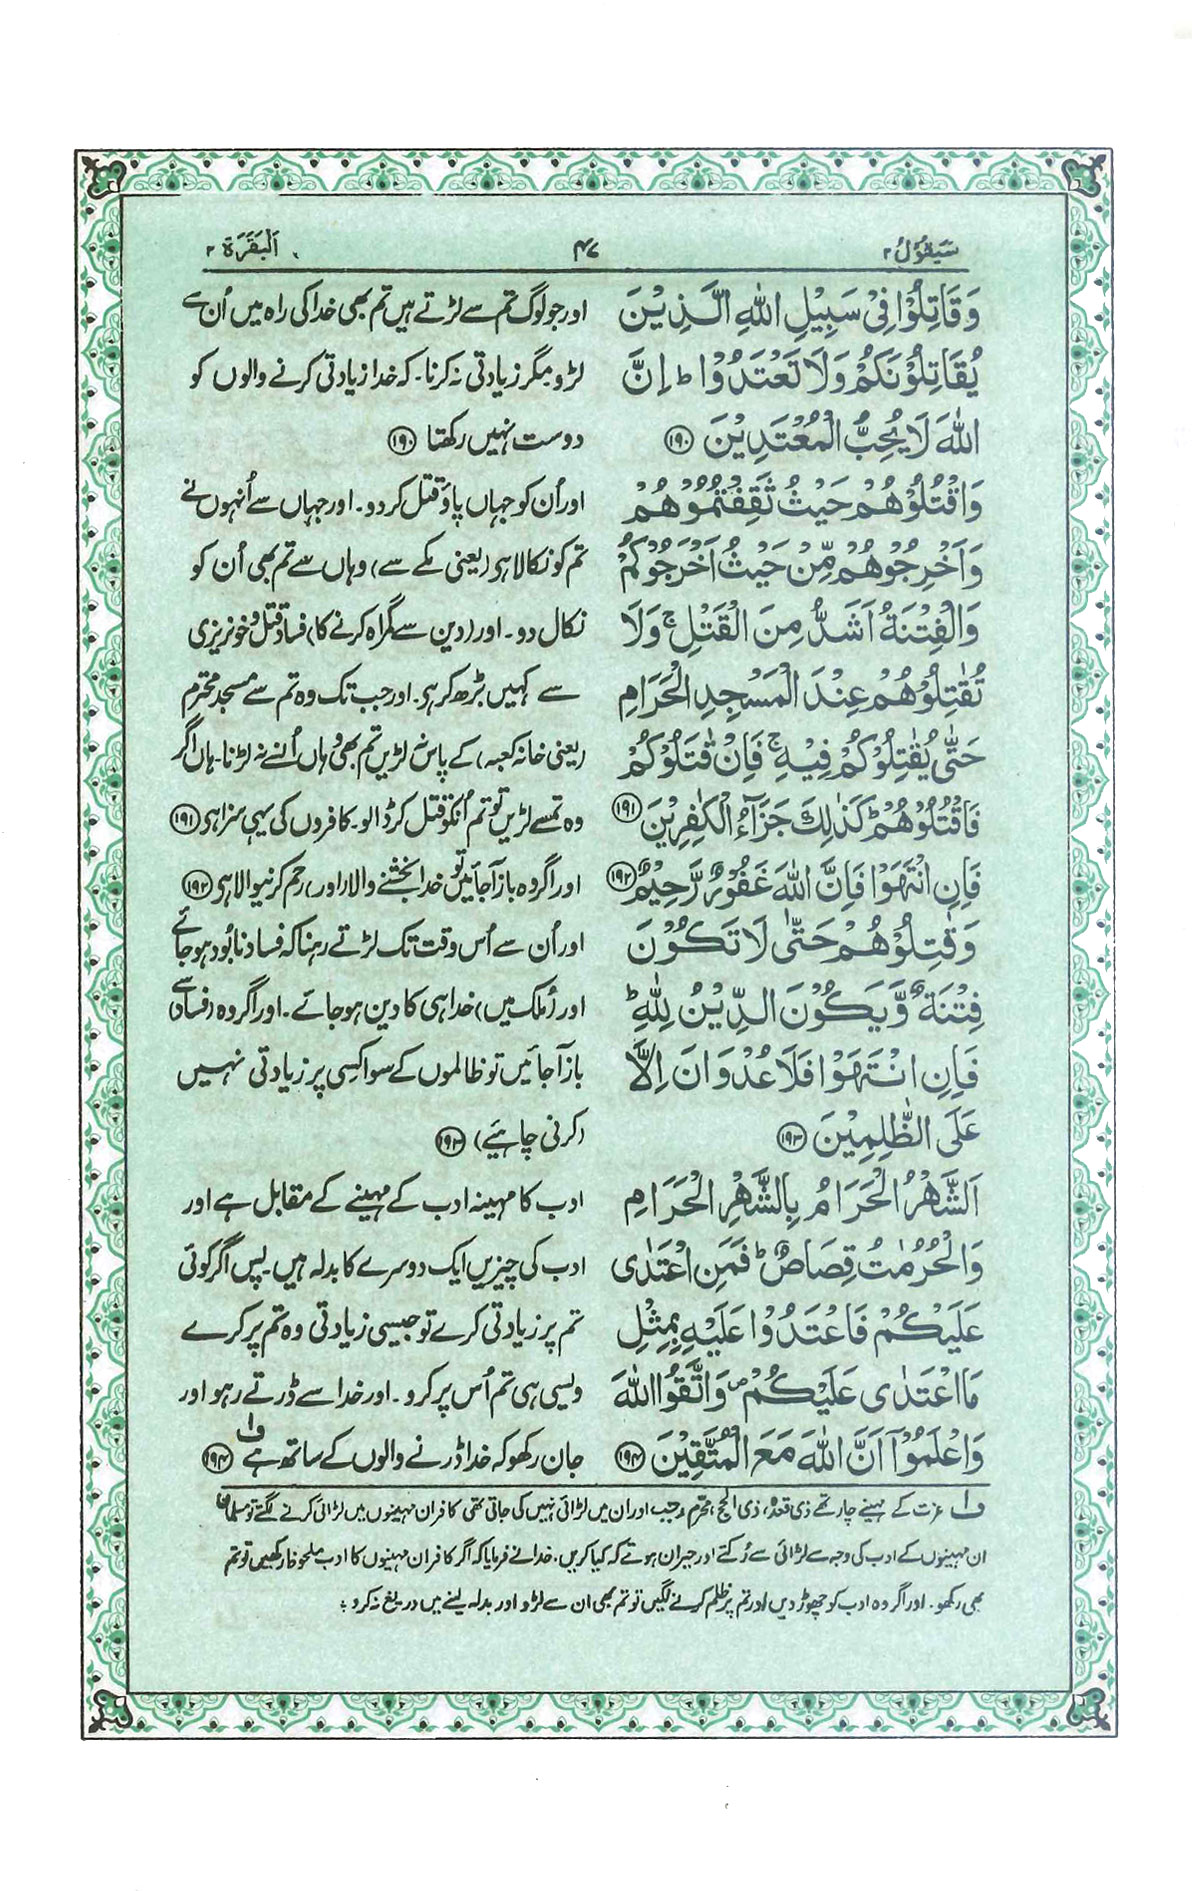 سَیَقُوْلُ ۲
۴۷
اَلْبَقَرَة ۲
وَقَاتِلُوْا فِیْ سَبِیْلِ اللّٰهِ الَّذِیْنَ
یُقَاتِلُوْنَكُمْ وَلَا تَعْتَدُوْا ؕ اِنَّ
اللّٰهَ لَا یُحِبُّ الْمُعْتَدِیْنَ ۱۹۰
وَاقْتُلُوْهُمْ حَیْثُ ثَقِفْتُمُوْهُمْ
وَاَخْرِجُوْهُمْ مِّنْ حَیْثُ اَخْرَجُوْكُمْ
وَالْفِتْنَةُ اَشَدُّ مِنَ الْقَتْلِ ۚ وَلَا
تُقٰتِلُوْهُمْ عِنْدَ الْمَسْجِدِ الْحَرَامِ
حَتّٰی یُقٰتِلُوْكُمْ فِیْهِ ۚ فَاِنْ قٰتَلُوْكُمْ
فَاقْتُلُوْهُمْ ؕ كَذٰلِكَ جَزَآءُ الْكٰفِرِیْنَ ۱۹۱
فَاِنِ انْتَهَوْا فَاِنَّ اللّٰهَ غَفُوْرٌ رَّحِیْمٌ ۱۹۲
وَقٰتِلُوْهُمْ حَتّٰی لَا تَكُوْنَ
فِتْنَةٌ وَّیَكُوْنَ الدِّیْنُ لِلّٰهِ ؕ
فَاِنِ انْتَهَوْا فَلَا عُدْوَانَ اِلَّا
عَلَی الظّٰلِمِیْنَ ۱۹۳
اَلشَّهْرُ الْحَرَامُ بِالشَّهْرِ الْحَرَامِ
وَالْحُرُمٰتُ قِصَاصٌ ؕ فَمَنِ اعْتَدٰی
عَلَیْكُمْ فَاعْتَدُوْا عَلَیْهِ بِمِثْلِ
مَا اعْتَدٰی عَلَیْكُمْ ۪ وَاتَّقُوا اللّٰهَ
وَاعْلَمُوْٓا اَنَّ اللّٰهَ مَعَ الْمُتَّقِیْنَ ۱۹۴
اور جو لوگ تم سے لڑتے ہیں تم بھی خدا کی راہ میں اُن سے
لڑو مگر زیادتی نہ کرنا۔ کہ خدا زیادتی کرنے والوں کو
دوست نہیں رکھتا ۱۹۰
اور اُن کو جہاں پاؤ قتل کر دو۔ اور جہاں سے اُنہوں نے
تم کو نکالا ہی (یعنی مکے سے) وہاں سے تم بھی اُن کو
نکال دو۔ اور (دین سے گمراہ کرنے کا) فساد قتل و خونریزی
سے کہیں بڑھ کر ہی۔ اور جب تک وہ تم سے مسجد محترم
(یعنی خانہ کعبہ) کے پاس نہ لڑیں تم بھی وہاں اُنسے نہ لڑنا۔ ہاں اگر
وہ تمسے لڑیں تو تم اُنکو قتل کر ڈالو۔ کافروں کی یہی سزا ہی ۱۹۱
اور اگر وہ باز آجائیں تو خدا بخشنے والا (اور) رحم کرنیوالا ہی ۱۹۲
اور اُن سے اُس وقت تک لڑتے رہنا کہ فساد نابود ہو جائے
اور (ملک میں) خدا ہی کا دین ہو جائے۔ اور اگر وہ (فساد سے)
باز آجائیں تو ظالموں کے سوا کسی پر زیادتی نہیں
(کرنی چاہیے) ۱۹۳
ادب کا مہینہ ادب کے مہینے کے مقابل ہے اور
ادب کی چیزیں ایک دوسرے کا بدلہ ہیں۔ پس اگر کوئی
تم پر زیادتی کرے تو جیسی زیادتی وہ تم پر کرے
ویسی ہی تم اُس پر کرو۔ اور خدا سے ڈرتے رہو اور
جان رکھو کہ خدا ڈرنے والوں کے ساتھ ہے ف۱ ۱۹۴
ف۱ عزت کے مہینے چار تھے ذی قعدہ، ذی الحج، محرم، رجب اور ان میں لڑائی نہیں کی جاتی تھی کافر ان مہینوں میں لڑائی کرنے لگتے تو مسلمان
ان مہینوں کے ادب کی وجہ سے لڑائی سے رُکتے اور حیران ہوتے کہ کیا کریں۔ خدا نے فرمایا کہ اگر کافر ان مہینوں کا ادب ملحوظ رکھیں تو تم
بھی رکھو۔ اور اگر وہ ادب کو چھوڑ دیں اور تم پر ظلم کرنے لگیں تو تم بھی ان سے لڑو اور بدلہ لینے میں دریغ نہ کرو ؞